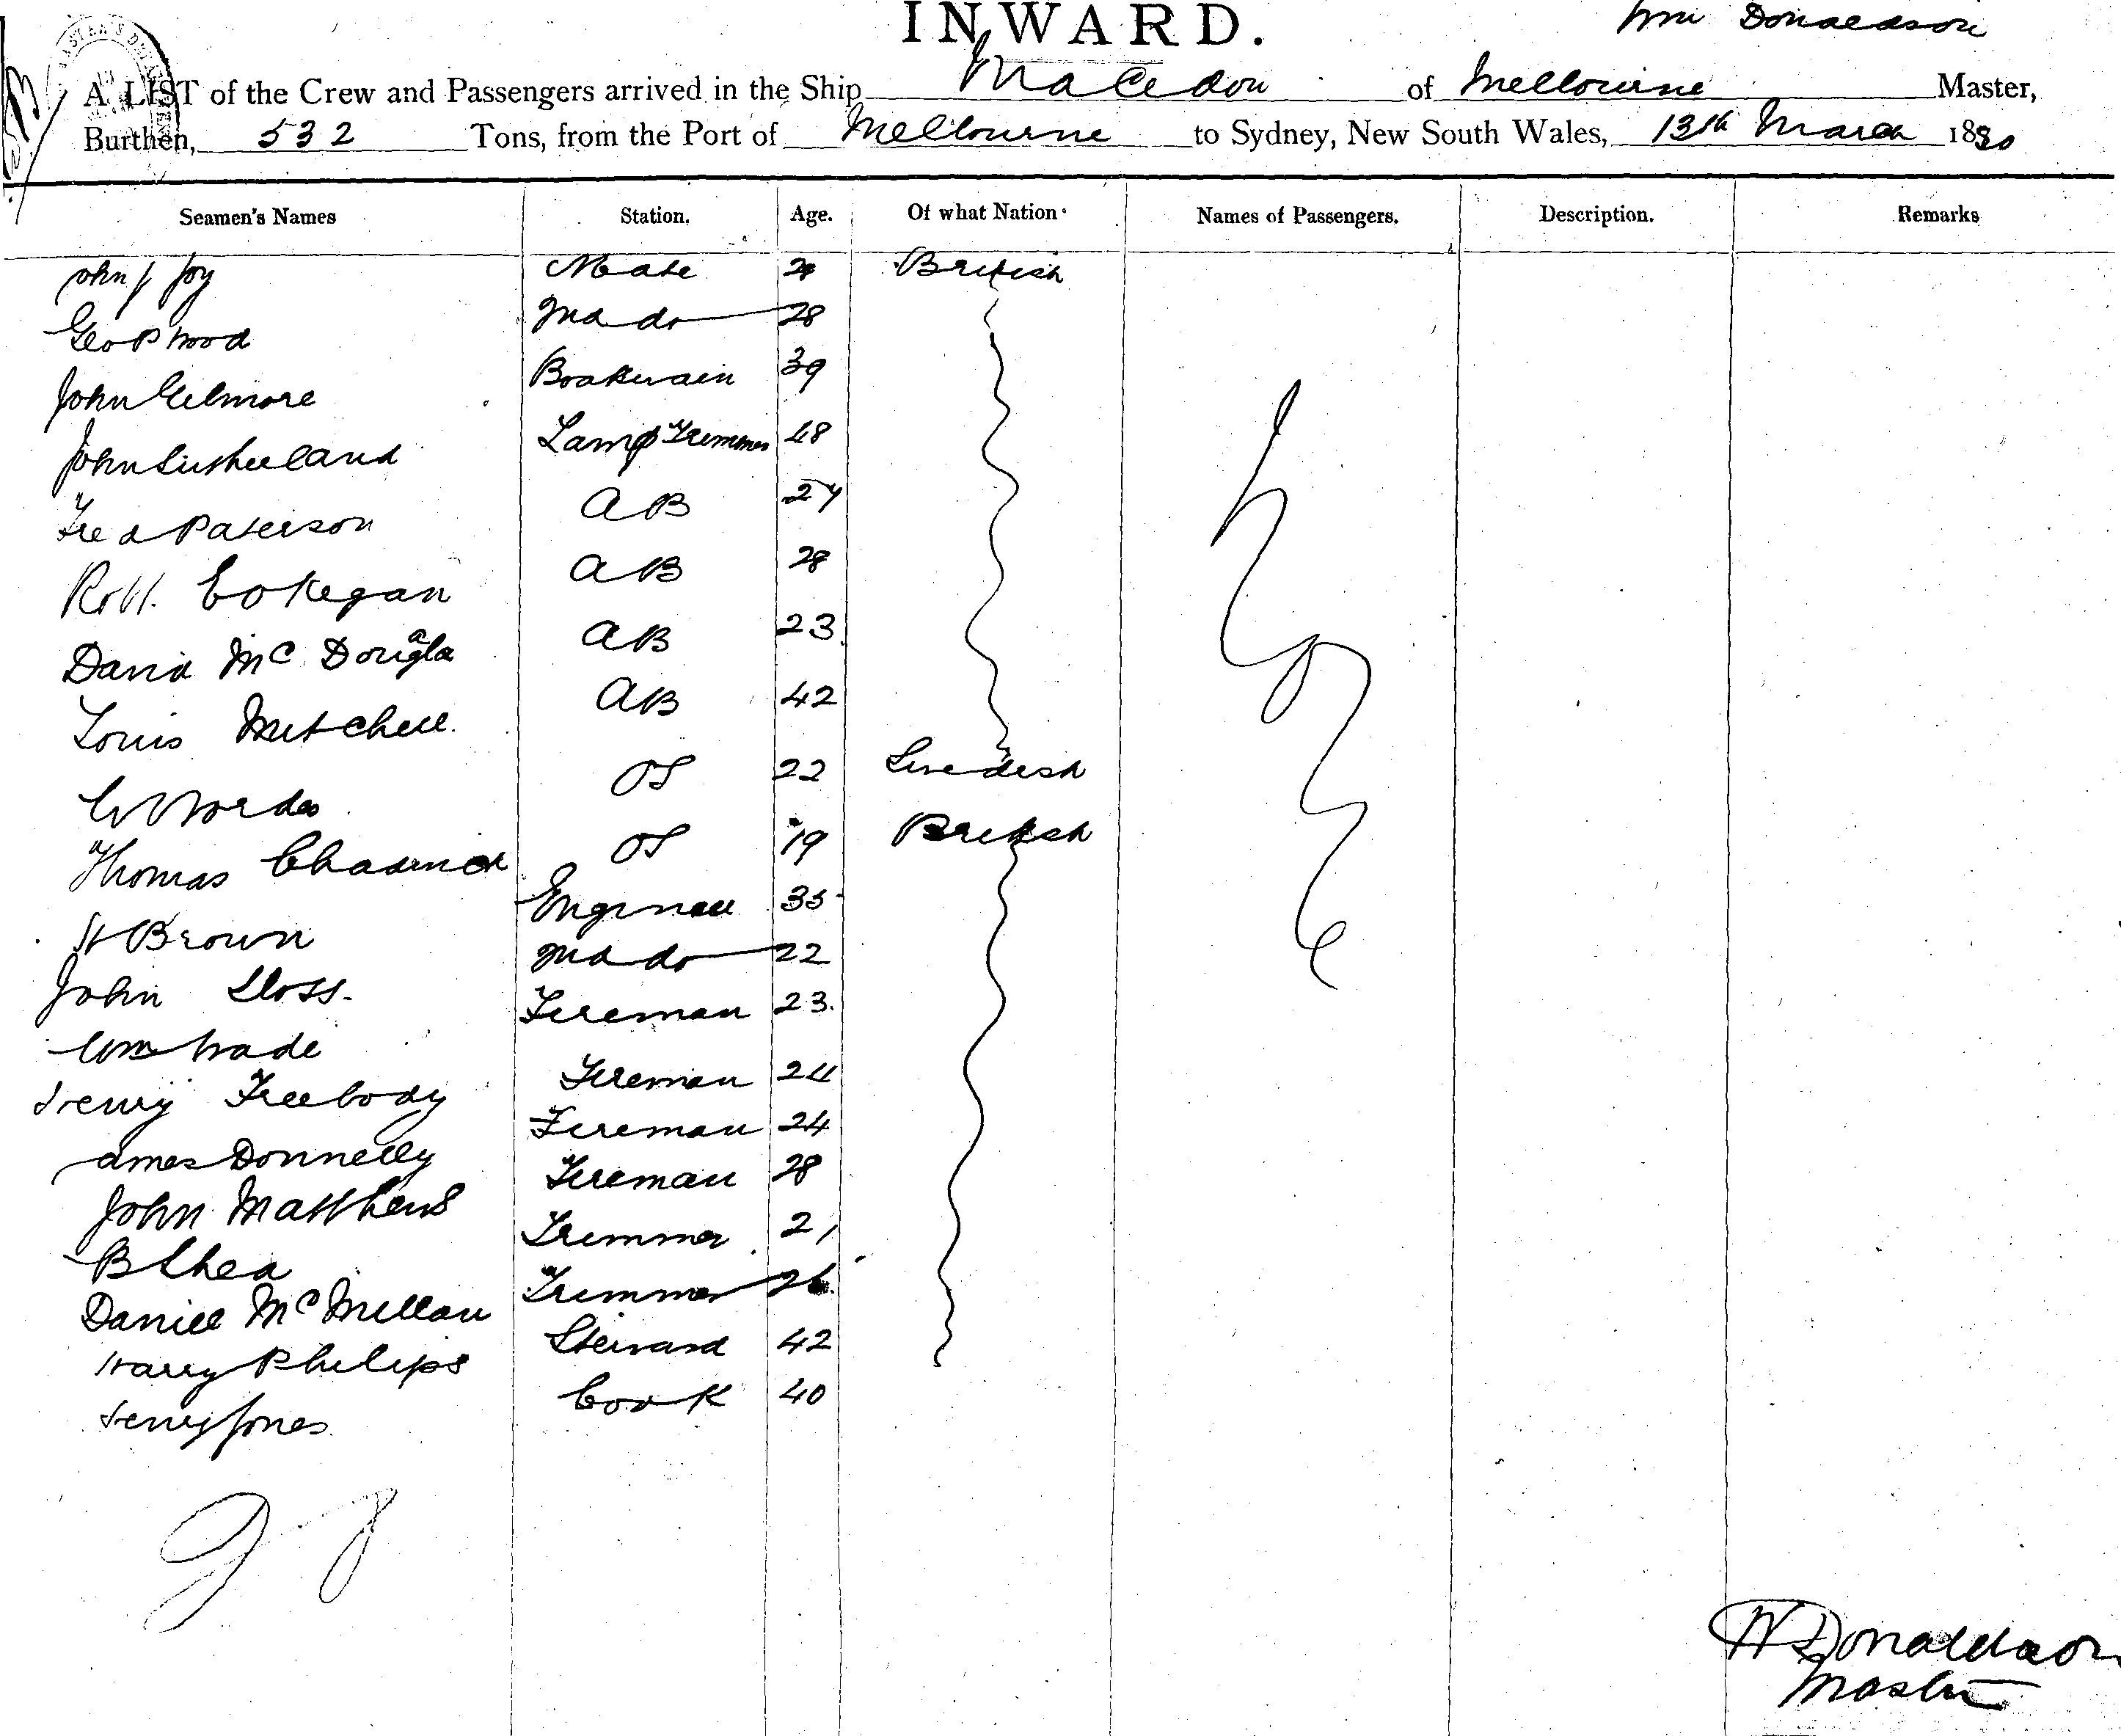 INWARD.
Wm Donaldson
A LIST of the Crew and Passengers arrived in the Ship Macedon of Melbourne Master,
Burthen, 532 Tons, from the Port of Melbourne to Sydney, New South Wales, 13th March 1880
Seamen's Names Station. Age. Of what Nation Names of Passengers. Description. Remarks
John J Joy Mate British
Geo P Wood 2nd do 28
John Gilmore Boatswain 39
John Sutherland Lamp Trimmer 48
Fred Paterson AB 27
Robt. AB 28
David McDougla AB 23
Louis Mitchell. AB 42
OS 22 Swedish
Thomas Chadwick OS 19 British
H Brown Engineer 35
John 2nd do 22
Wm Wade Fireman 23.
Henry Freebody Fireman 24
James Donnelly Fireman 24
John Matthews Fireman 28
B Shea Trimmer 21
Daniel McMillan Trimmer 26
Harry Philips Steward 42
Henry Jones Cook 40
W Donaldson
Master